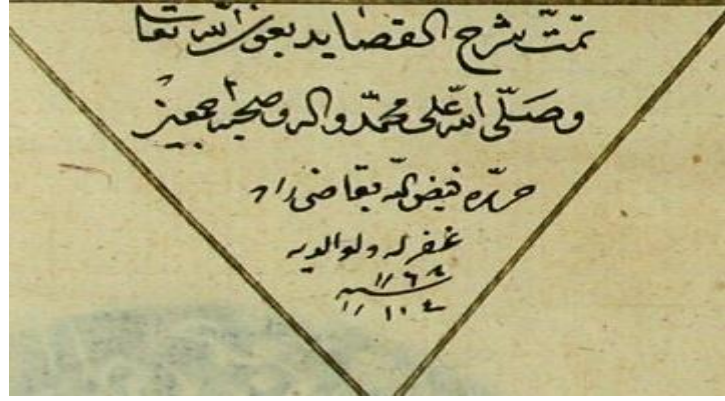 تمت شرح القصايد بعون الله تعا
وصلى الله على محمد واله وصحبه اجمعين
حرره فيض الله بقاضى زاد
غفر له ولوالديه